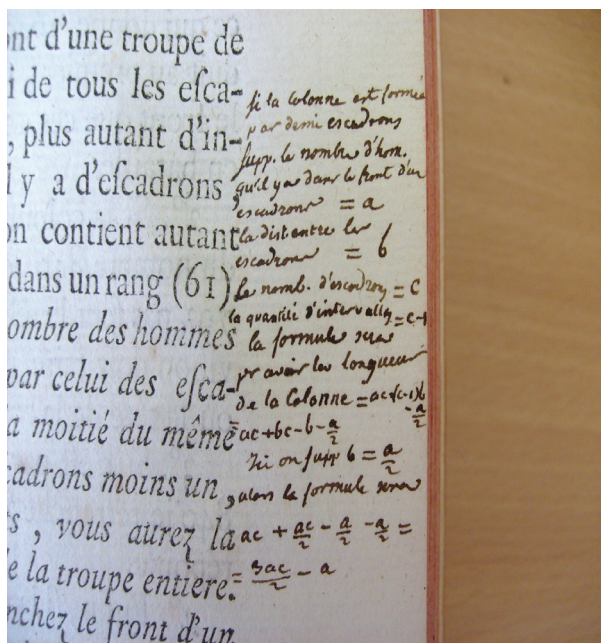 ont d'une troupe de
i de tous les eſca-
, plus autant d'in-
l y a d'eſcadrons ,
on contient autant
dans un rang (61)
ombre des hommes
par celui des eſca-
a moitié du même
cadrons moins un ,
ts , vous aurez la
e la troupe entiere.
nchez le front d'un
si la colonne est formée
par demi escadrons
supp. le nombre d'hom.
qu'il y a dans le front d'un
escadrons = a
la dist entre les
escadrons = b
le nomb. d'escadrons = c
la quantité d'intervalles = c-1
la formule sera
pr avoir la longueur
de la Colonne = ac+(c-1)b
- a/2
= ac + bc - b - a/2
si on supp b = a/2
alors la formule sera
ac + ac/2 - a/2 - a/2 =
= 3ac/2 - a